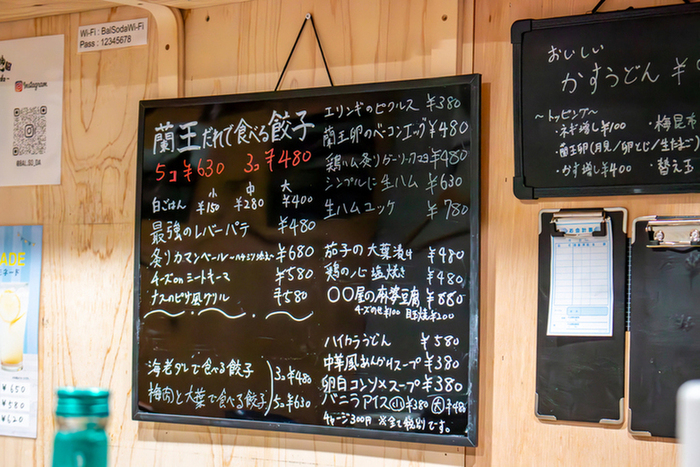 Wi-Fi : BalSodaWi-Fi
Pass : 12345678
Instagram
@BAL.SO_DA
蘭王 だれで食べる餃子
5コ ¥630 3コ ¥480
小 中 大
白ごはん ¥150 ¥280 ¥400
最強のレバーパテ ¥480
炙りカマンベール ¥680
チーズonミートキーマ ¥580
ナスのピザ風グリル ¥580
海老ダレで食べる餃子
梅肉と大葉で食べる餃子
3コ ¥480
5コ ¥630
エリンギのピクルス ¥380
蘭王卵のベーコンエッグ ¥480
鶏ハム炙りガーリックマヨ ¥480
シンプルに生ハム ¥630
生ハムユッケ ¥780
茄子の大葉漬け ¥480
鶏の心塩焼き ¥480
〇〇屋の麻婆豆腐 ¥880
チーズのせ¥100 目玉焼¥200
ハイカラうどん ¥580
中華風あんかけスープ ¥380
卵白コンソメスープ ¥380
バニラアイス 小 ¥380 大 ¥480
チャージ300円 ※全て税別です。
おいしい
かすうどん
〜トッピング〜
・ネギ増し ¥100 ・梅昆布
・蘭王卵(月見/卵とじ/生たまご)
・かす増し ¥400 ・替え玉
ADE
¥650
¥580
¥620